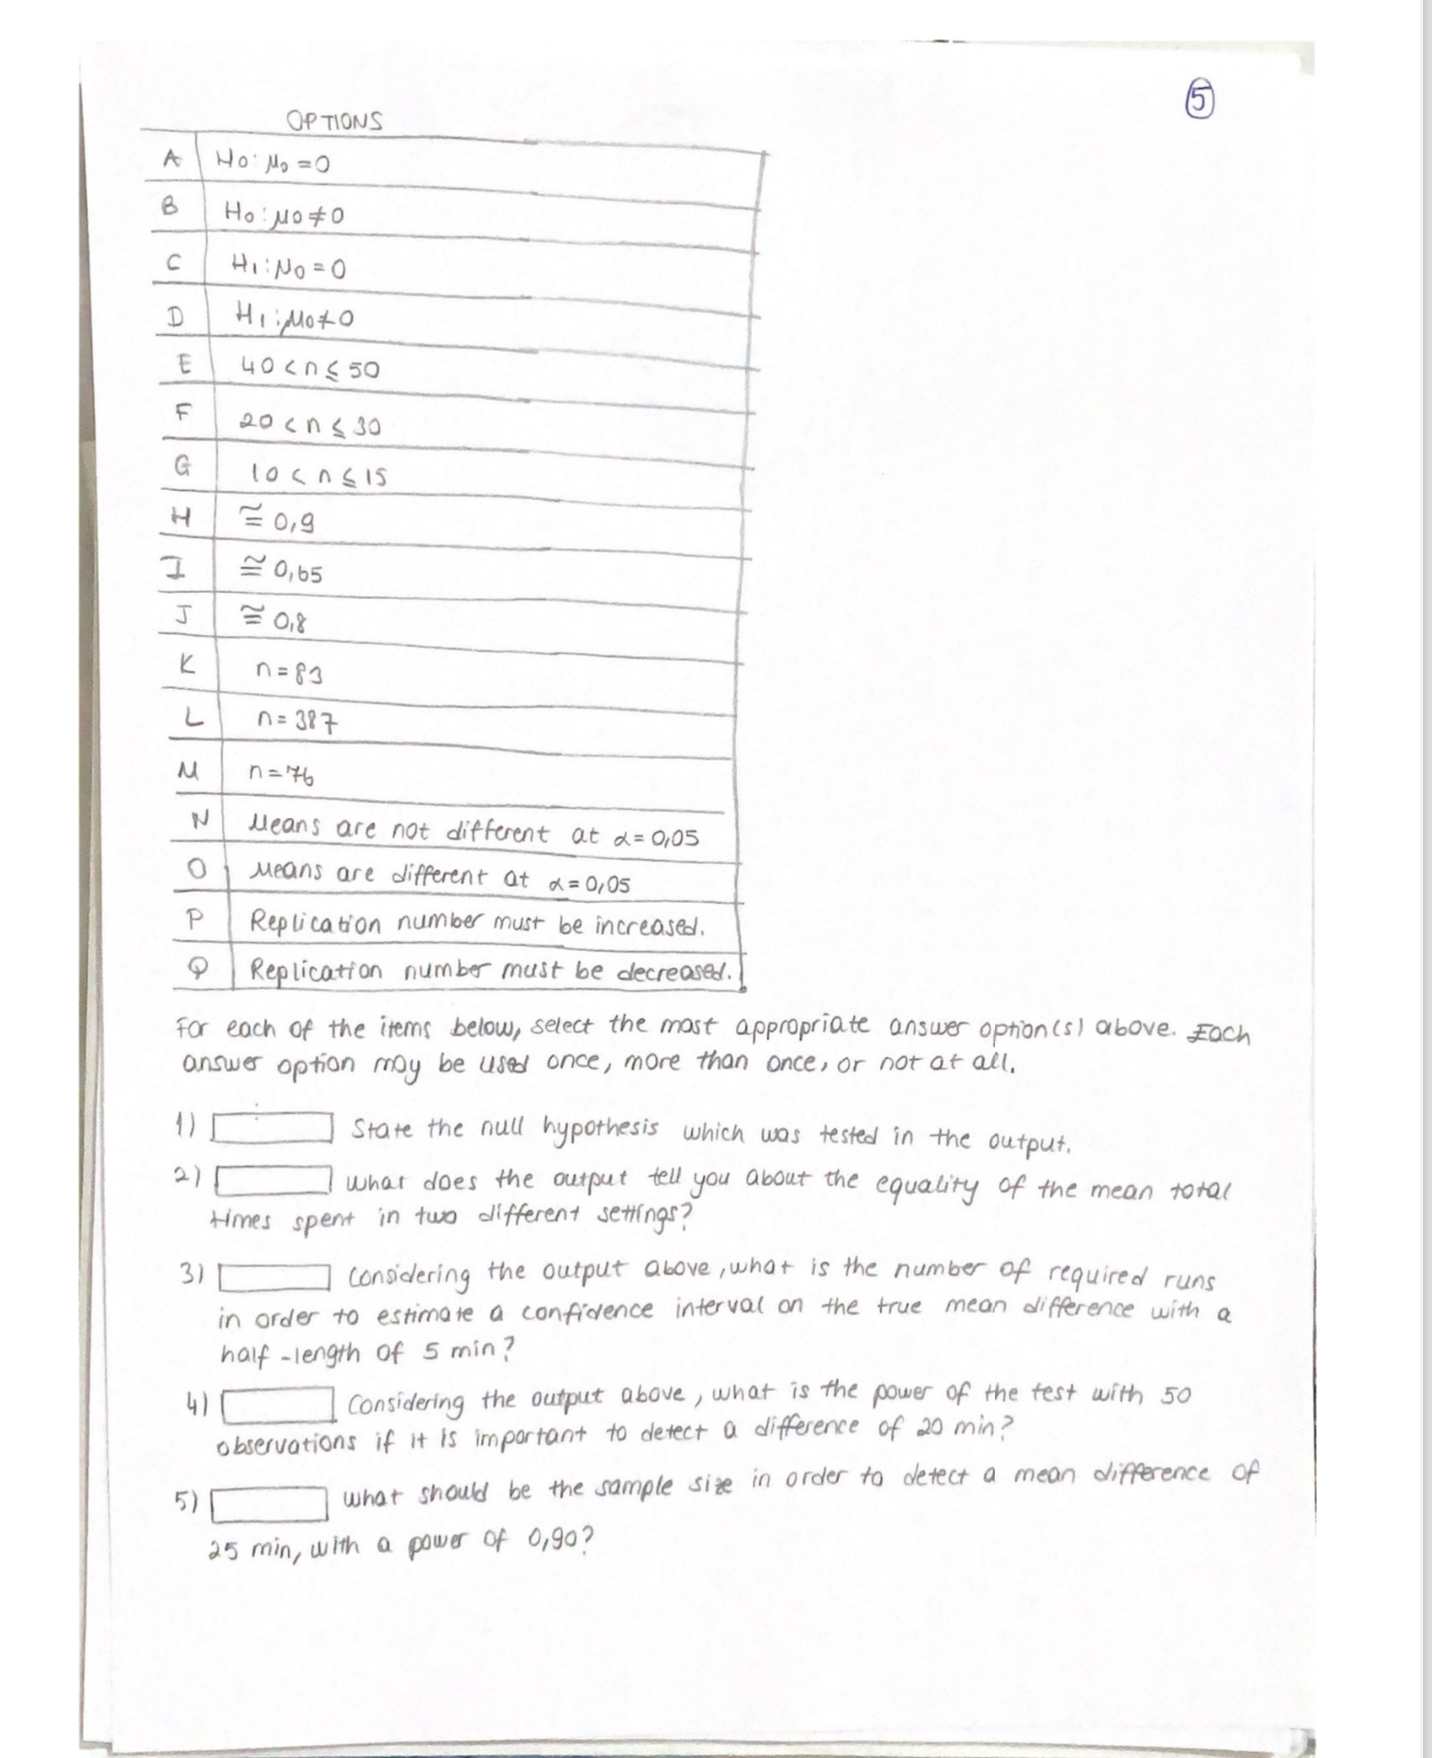 5
OPTIONS
A H0: μ0 = 0
B H0: μ0 ≠ 0
C H1: μ0 = 0
D H1: μ0 ≠ 0
E 40 < n ≤ 50
F 20 < n ≤ 30
G 10 < n ≤ 15
H ≅ 0,9
I ≅ 0,65
J ≅ 0,8
K n = 83
L n = 387
M n = 76
N Means are not different at α = 0,05
O Means are different at α = 0,05
P Replication number must be increased.
Q Replication number must be decreased.
For each of the items below, select the most appropriate answer option(s) above. Each
answer option may be used once, more than once, or not at all.
1) State the null hypothesis which was tested in the output.
2) What does the output tell you about the equality of the mean total
times spent in two different settings?
3) Considering the output above, what is the number of required runs
in order to estimate a confidence interval on the true mean difference with a
half-length of 5 min?
4) Considering the output above, what is the power of the test with 50
observations if it is important to detect a difference of 20 min?
5) What should be the sample size in order to detect a mean difference of
25 min, with a power of 0,90?